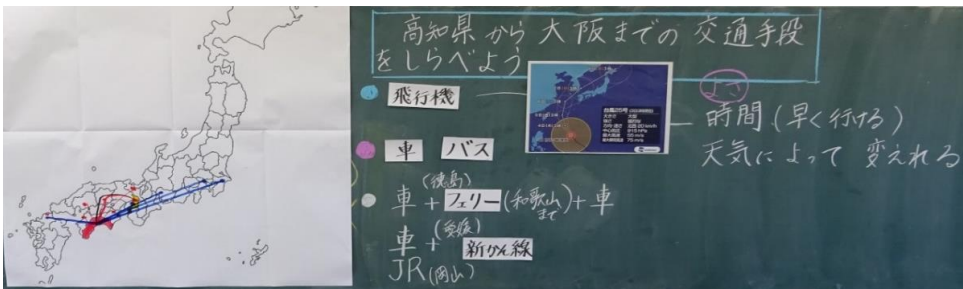 高知県から大阪までの交通手段
をしらべよう
飛行機
車 バス
(徳島)
車+フェリー(和歌山まで)+車
(愛媛)
車+新かん線
JR(岡山)
台風25号
よさ
時間(早く行ける)
天気によって変えれる